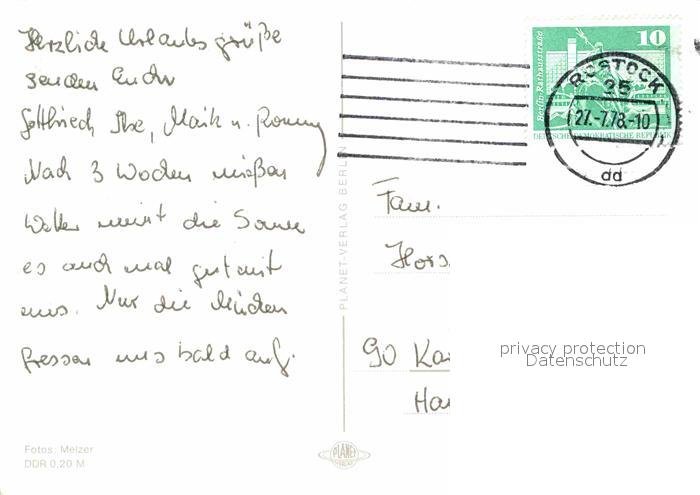 Herzliche Urlaubsgrüße
senden Euch
Gottfried Ilse, Maik u. Ronny
Nach 3 Wochen miesen
Wetter meint die Sonne
es auch mal gut mit
uns. Nur die Mücken
fressen uns bald auf.
Fotos: Melzer
DDR 0,20 M
PLANET-VERLAG BERLIN
PLANET
VERLAG
10
Berlin, Rathausstraße
DEUTSCHE DEMOKRATISCHE REPUBLIK
ROSTOCK
25
27.-7.78.-10
dd
Fam.
Hors
90 Ka
Ha
privacy protection
Datenschutz